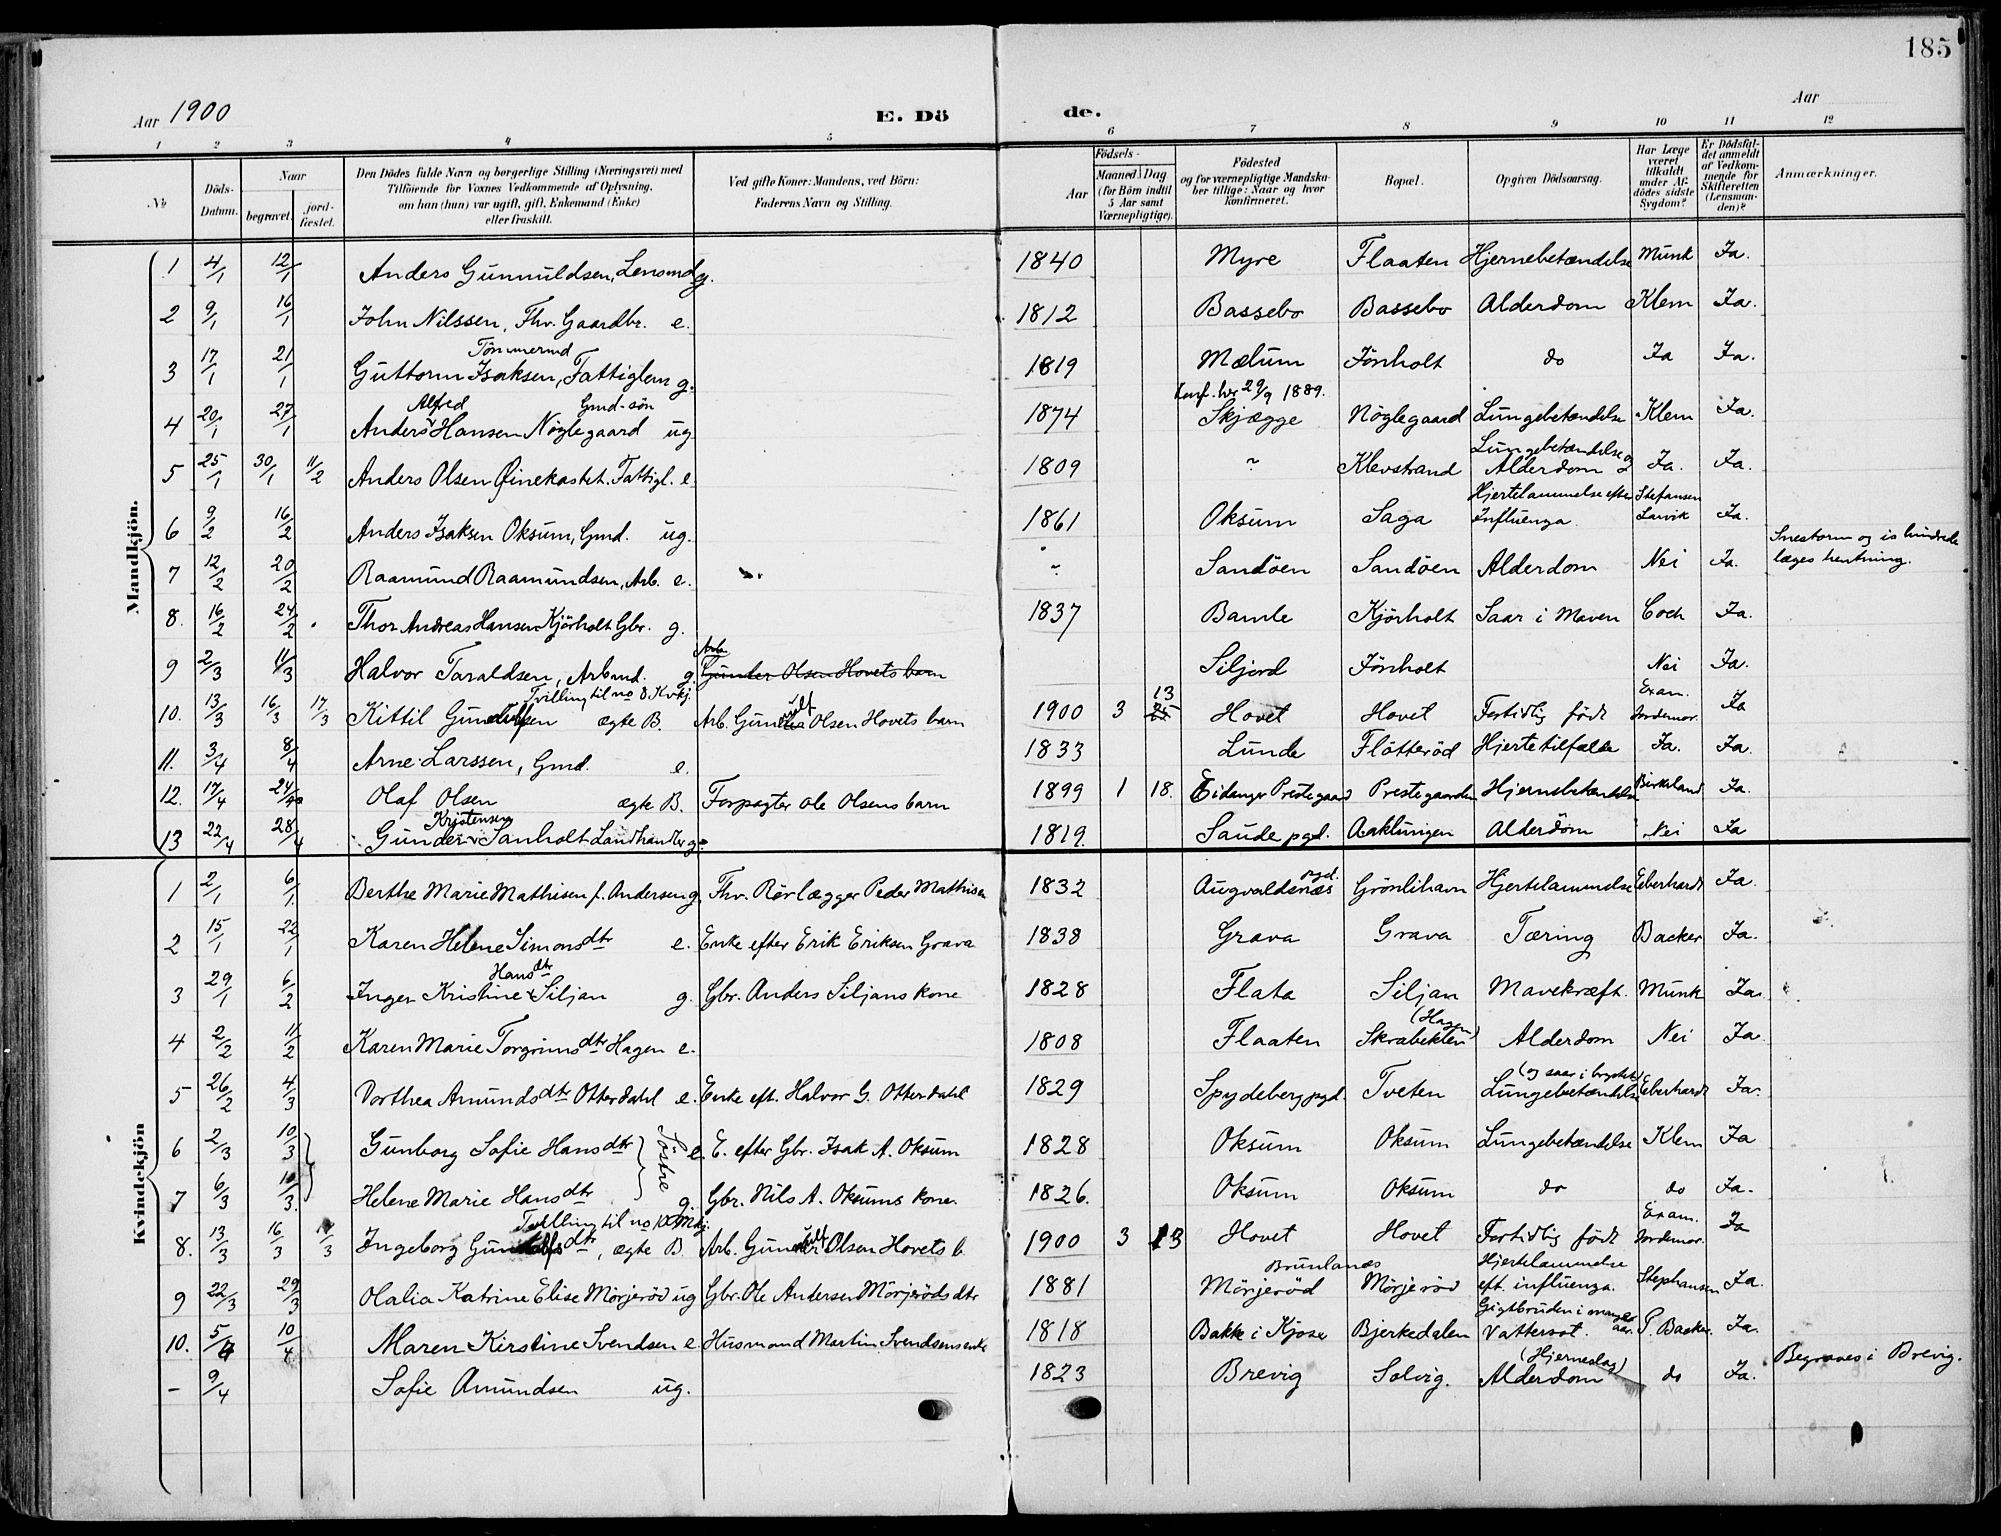 185
Aar 1900 E. Dö de. Aar
1 2 3 4 5 6 7 8 9 10 11 12
No Döds-Datum. Naar begravet. jordfæstet. Den Dödes fulde Navn og borgerlige Stilling (Næringsvei) med Tilföiende for Voxnes Vedkommende af Oplysning, om han (hun) var ugift, gift, Enkemand (Enke) eller fraskilt. Ved gifte Koner: Mandens, ved Börn: Faderens Navn og Stilling. Födsels- Aar Maaned Dag (for Börn indtil 5 Aar samt Værnepligtige). Födested og for værnepligtige Mandskaber tillige: Naar og hvor konfirmeret. Bopæl. Opgiven Dödsaarsag. Har Læge været tilkaldt under Afdödes sidste Sygdom? Er Dödsfaldet anmeldt af Vedkommende for Skifteretten (Lensmanden)? Anmærkninger.
Mandkjön.
1 4/1 12/1 Anders Gunnuldsen, Lensmd g. 1840 Myre Flaaten Hjernebetændelse Munk Ja.
2 9/1 16/1 John Nilssen, Fhv. Gaardbr. e. 1812 Bassebo Bassebo Alderdom Klem Ja.
Tømmermd
3 17/1 21/1 Guttorm Isaksen, Fattiglem g. 1819 Mælum Jönholt do Ja Ja.
Alfred Gmd-sön 29/9 1889.
4 20/1 27/1 Anders Hansen Nöglegaard ug 1874 Skjægge Nöglegaard Lungebetændelse Klem Ja.
Lungebetændelse og
5 25/1 30/1 11/2 Anders Olsen Öinekastet. Fattigl. e. 1809 " Klevstrand Alderdom Ja. Ja.
Hjertelammelse efter Stefansen
6 9/2 16/2 Anders Isaksen Oksum, Gmd. ug. 1861 Oksum Saga Influenza. Larvik Ja.
Snestorm og is hindrede
7 12/2 20/2 Raamund Raamundsen, Arb. e. " Sandöen Sandöen Alderdom Nei Ja. læges hentning.
8. 16/2 24/2 Thor Andreas Hansen Kjörholt Gbr. g. 1837 Bamle Kjörholt Saar i Maven Coch Ja.
Arb
9 2/3 11/3 Halvor Taraldsen, Arbmd. g. Gunder Olsen Hovets barn Siljord Jönholt Nei Ja.
Tvilling til no 8 Kvkj. 13 Exam.
10. 13/3 16/3 17/3 Kittil Gundulfsen ægte B. Arb. Gundulf Olsen Hovets barn 1900 3 Hovet Hovet Fortidlig födt Jordemor. Ja
11. 3/4 8/4 Arne Larssen, Gmd. e. 1833 Lunde Flötteröd Hjertetilfælde Ja. Ja.
12. 17/4 24/4 Olaf Olsen ægte B. Forpagter Ole Olsens barn 1899 1 18. Eidanger Prestegaard Prestegaarden Hjernebetændelse Birkeland Ja.
Kristensen
13 22/4 28/4 Gunder Sanholt Landhandler g. 1819. Saude pgd. Aaklungen Alderdom Nei Ja
Kvindekjön
1 2/1 6/1 Berthe Marie Mathisen f. Andersen g. Fhv. Rörlægger Peder Mathisen 1832 Augvaldsnæs pgd. Grönlihavn Hjertelammelse Eberhardt Ja.
2 15/1 22/1 Karen Helene Simonsdtr e. Enke efter Erik Eriksen Grava 1838 Grava Grava Tæring Backer Ja.
Hansdtr
3 29/1 6/2 Inger Kristine Siljan g. Gbr. Anders Siljans kone 1828 Flata Siljan Mavekræft. Munk Ja.
(Hagen)
4 2/2 11/2 Karen Marie Torgrimsdtr Hagen e. 1808 Flaaten Skrabekleen Alderdom Nei Ja.
(og saar i brystet)
5 26/2 4/3 Dorthea Amundsdtr Otterdahl e. Enke eft. Halvor G. Otterdahl 1829 Spydeberg pgd. Tveten Lungebetændelse Eberhardt Ja.
6 2/3 10/3 Gunborg Sofie Hansdtr Söstre e. E. efter Gbr. Isak A. Oksum 1828 Oksum Oksum Lungebetændelse Klem Ja
7 6/3 10/3 Helene Marie Hansdtr g. Gbr. Nils A. Oksums kone. 1826. Oksum Oksum do do Ja.
Tvilling til no 10 Mkj. Exam.
8. 13/3 16/3 17/3 Ingeborg Gundulfsdtr, ægte B. Arb. Gundulf Olsen Hovets b. 1900 3 13 Hovet Hovet Fortidlig födt Jordemor. Ja
Brunlanæs Hjertelammelse
9 22/3 29/3 Olalia Katrine Elise Mörjeröd ug Gbr. Ole Andersen Mörjeröds dtr 1881 Mörjeröd Mörjeröd eft. influenza. Stephansen Ja.
Gigtbruden i mange aar.
10. 5/4 10/4 Maren Kirstine Svendsen e. Husmand Martin Svendsens enke 1818 Bakke i Kjose Bjerkedalen Vattersot. P. Backer. Ja.
(Hjerneslag) Begraves i Brevig.
- 9/4 Sofie Amundsen ug. 1823 Brevig Solvig. Alderdom do Ja.